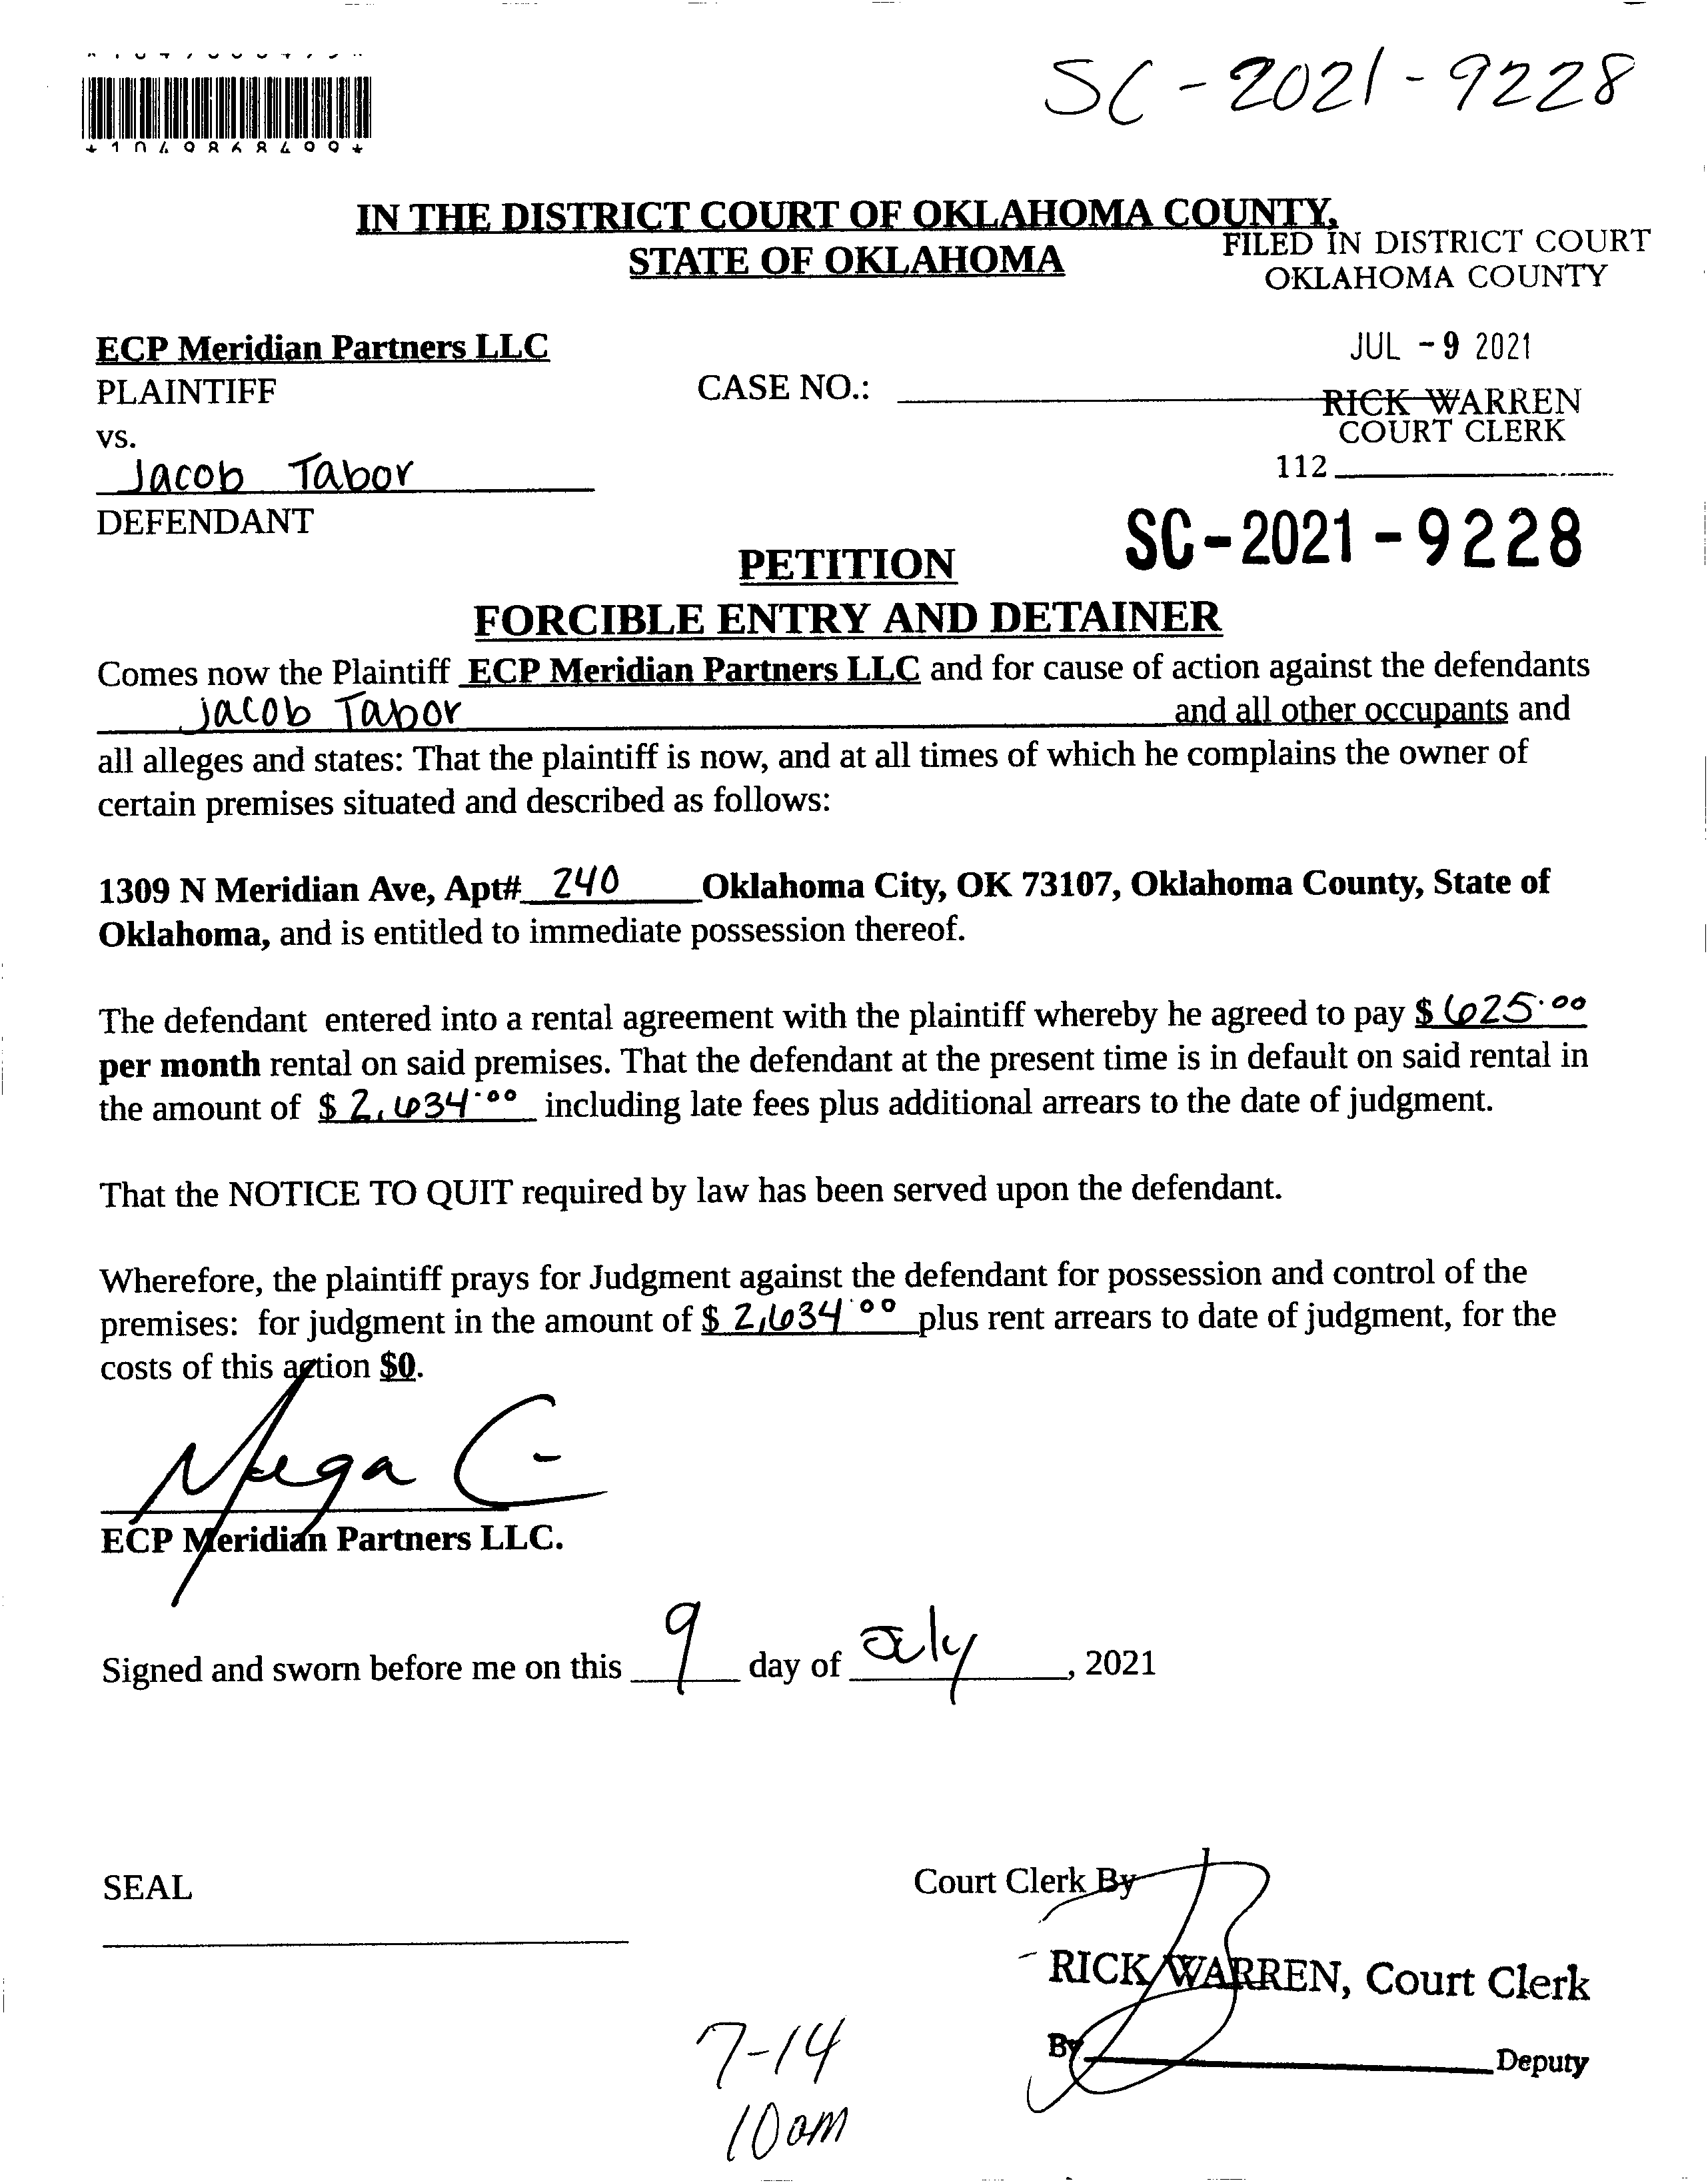 SC-2021-9228
IN THE DISTRICT COURT OF OKLAHOMA COUNTY,
STATE OF OKLAHOMA
FILED IN DISTRICT COURT
OKLAHOMA COUNTY
JUL - 9 2021
RICK WARREN
COURT CLERK
112
ECP Meridian Partners LLC
PLAINTIFF
CASE NO.:
vs.
Jacob Tabor
DEFENDANT
SC-2021-9228
PETITION
FORCIBLE ENTRY AND DETAINER
Comes now the Plaintiff ECP Meridian Partners LLC and for cause of action against the defendants
Jacob Tabor and all other occupants and
all alleges and states: That the plaintiff is now, and at all times of which he complains the owner of
certain premises situated and described as follows:
1309 N Meridian Ave, Apt# 240 Oklahoma City, OK 73107, Oklahoma County, State of
Oklahoma, and is entitled to immediate possession thereof.
The defendant entered into a rental agreement with the plaintiff whereby he agreed to pay $ 625.00
per month rental on said premises. That the defendant at the present time is in default on said rental in
the amount of $ 2,634.00 including late fees plus additional arrears to the date of judgment.
That the NOTICE TO QUIT required by law has been served upon the defendant.
Wherefore, the plaintiff prays for Judgment against the defendant for possession and control of the
premises: for judgment in the amount of $ 2,634.00 plus rent arrears to date of judgment, for the
costs of this action $0.
ECP Meridian Partners LLC.
Signed and sworn before me on this 9 day of July, 2021
SEAL
Court Clerk By
RICK WARREN, Court Clerk
By Deputy
7-14
10am